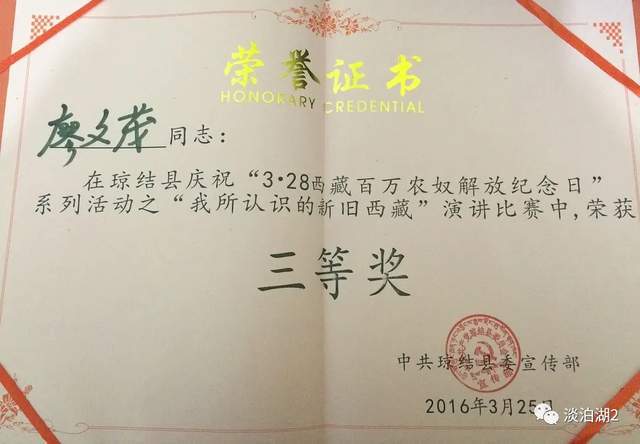 荣誉证书
HONORARY CREDENTIAL
廖文茂同志：
在琼结县庆祝“3·28西藏百万农奴解放纪念日”
系列活动之“我所认识的新旧西藏”演讲比赛中,荣获
三等奖
中共琼结县委宣传部
2016年3月25日
淡泊湖2